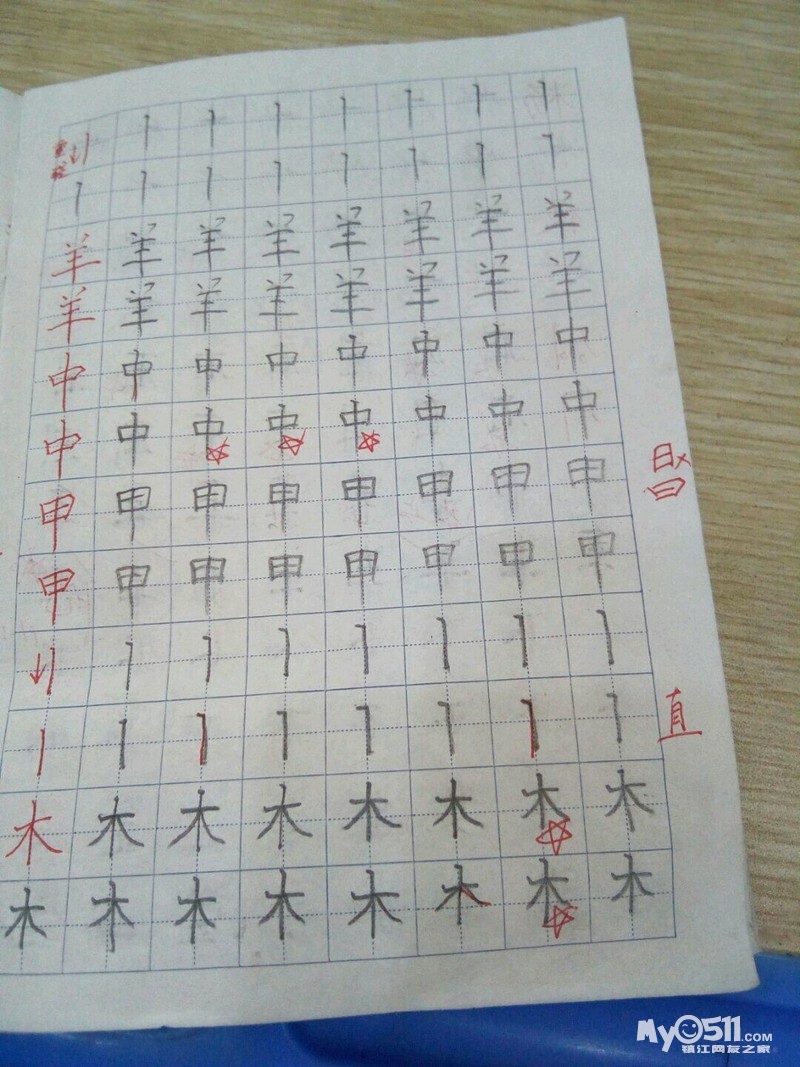 丨 丨 丨 丨 丨 丨 丨 丨
丨 丨 丨 丨 丨 丨 丨 丨
羊 羊 羊 羊 羊 羊 羊 羊
羊 羊 羊 羊 羊 羊 羊 羊
中 中 中 中 中 中 中 中
中 中 中 中 中 中 中 中
甲 甲 甲 甲 甲 甲 甲 甲
甲 甲 甲 甲 甲 甲 甲 甲
丨 丨 丨 丨 丨 丨 丨 丨
丨 丨 丨 丨 丨 丨 丨 丨
木 木 木 木 木 木 木 木
木 木 木 木 木 木 木 木
直
My0511.COM
镇江网友之家